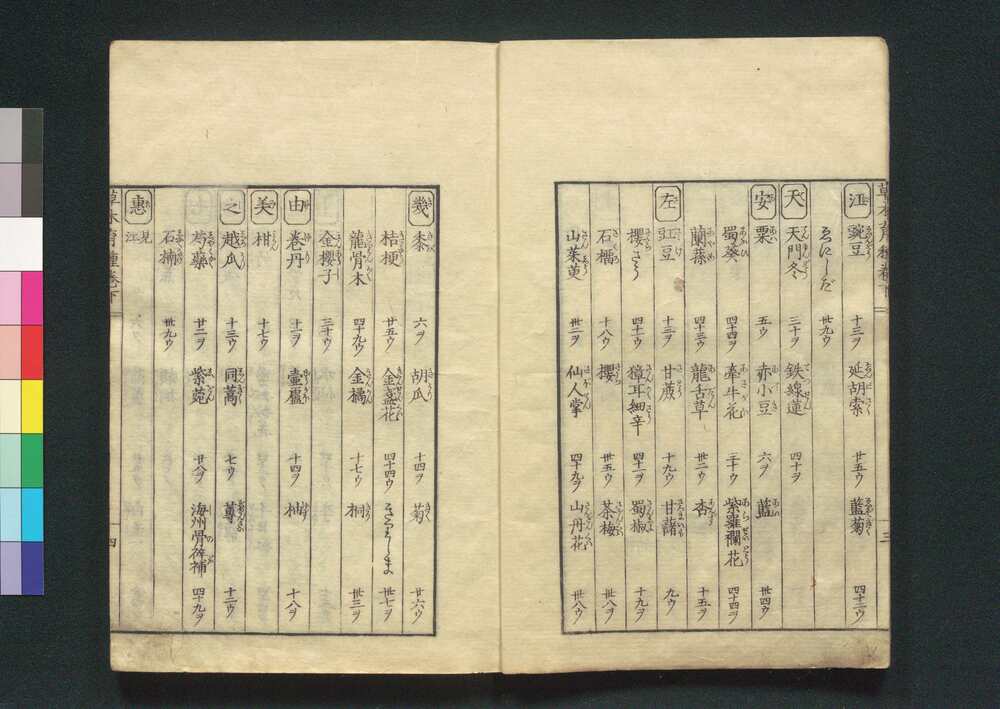 草木育種巻下
江 豌豆 十三ヲ 延胡索 廿五ウ 藍菊 四十二ウ
ゑにしだ 卅九ウ
天 天門冬 三十ヲ 鉄線蓮 四十ヲ
安 粟 五ウ 赤小豆 六ヲ 藍 卅四ウ
蜀葵 四十四ヲ 牽牛花 三十ウ 紫羅襴花 四十四ヲ
蘭蓀 四十三ウ 龍舌草 卅二ウ 杏 十五ヲ
左 豇豆 十三ヲ 甘蔗 十九ウ 甘藷 九ウ
櫻さう 四十ウ 獐耳細辛 四十一ヲ 蜀椒 十九ヲ
石榴 十八ウ 櫻 卅五ウ 茶梅 卅八ヲ
山茱萸 卅二ヲ 仙人掌 四十九ヲ 山丹花 卅八ウ
三
幾 黍 六ヲ 胡瓜 十四ヲ 菊 廿六ウ
桔梗 廿五ウ 金盞花 四十四ウ 卅七ヲ
龍骨木 四十九ウ 金橘 十七ウ 桐 卅三ヲ
金櫻子 三十ウ
由 巻丹 十二ヲ 壷盧 十四ヲ 柚 十八ヲ
美 柑 十七ウ
之 越瓜 十三ウ 同蒿 七ウ 蓴 十二ウ
芍藥 廿二ヲ 紫菀 廿八ヲ 海州骨砕補 四十九ヲ
石楠 卅九ウ
惠 見江
草木育種巻下
四